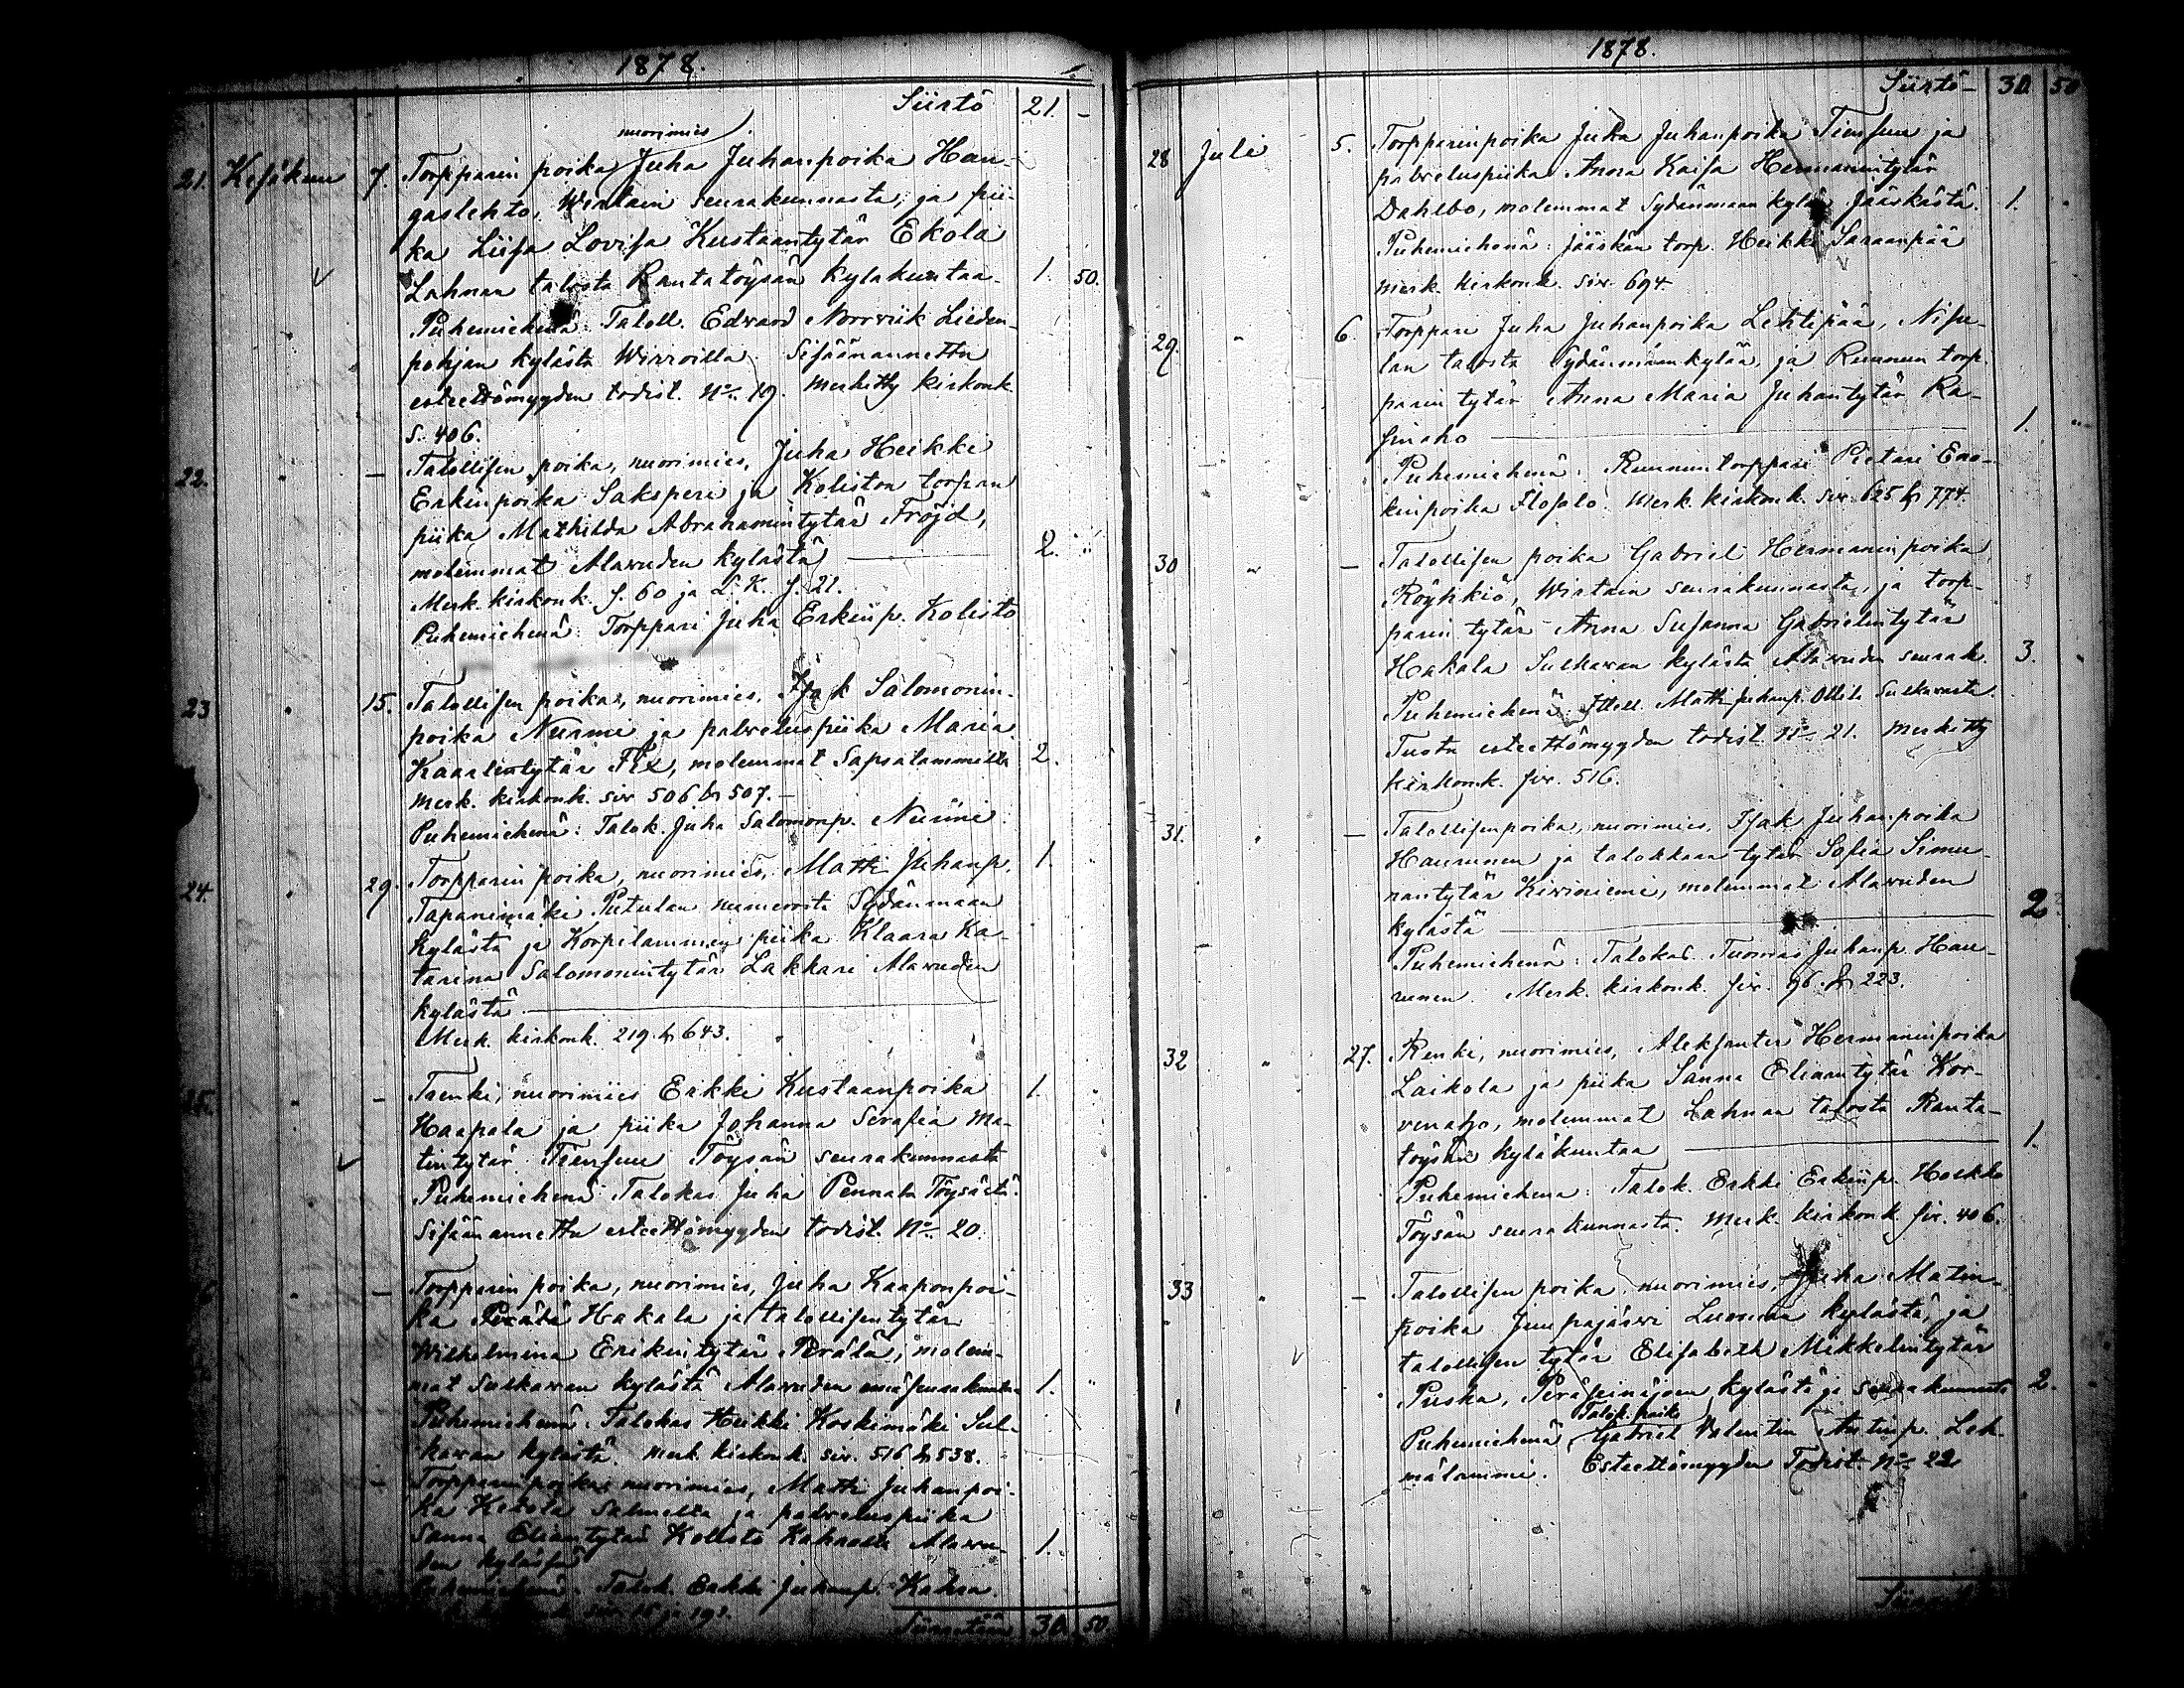 1878.
Siirtö 21. -
nuorimies
21. Kesäkuu 7. Torpparin poika Juha Juhanpoika Han-
gaslehto, Wirtain seurakunnasta, ja pii-
ka Liisa Lovisa Kustaantytär Ekola
Lahnan talosta Rantatöysän kyläkuntaa. 1. 50.
Puhemiehenä: Taloll. Edvard Norrvik Lieden-
pohjan kylästä Wirroilla. Sisäänannettu
esteettömyyden todist. No 19. Merkitty kirkonk.
S. 406.
22. " - Talollisen poika, nuorimies, Juha Heikki
Erkinpoika Saksperi ja Koliston torpan
piika Mathilda Abrahamintytär Fröjd,
molemmat Alavuden kylästä 2. "
Merk. kirkonk. S. 60 ja L. K. S. 21.
Puhemiehenä: Torppari Juha Erkinp. Kolisto
23 " 15. Talollisen poika, nuorimies, Isak Salomonin-
poika Nurmi ja palveluspiika Maria
Kaarlentytär Fix, molemmat Sapsalammilta 2.
Merk. kirkonk. siv 506 & 507.
Puhemiehenä: Talok. Juha Salomonp. Nurmi.
24. " 29. Torpparin poika, nuorimies, Matti Juhanp. 1.
Tapanimäki Putulan numerosta Sydänmaan
kylästä ja Korpilammen piika Klaara Ka-
tarina Salomonintytär Lakkari Alavuden
kylästä
Merk. kirkonk. 219 & 643.
25. " - Trenki, nuorimies Erkki Kustaanpoika 1. "
Haapala ja piika Johanna Serafia Ma-
tintytär Tiensuu Töysän seurakunnasta
Puhemiehenä Talokas Juha Pennala Töysästä.
Sisäänannettu esteettömyyden todist. No 20.
" - Torpparin poika, nuorimies, Juha Kaaponpoi-
ka Hakala ja talollisen tytär
Wilhelmina Erikintytär Perälä, molem-
mat Sulkavan kylästä Alavuden seurakuntaa 1. "
Puhemiehenä: Talokas Heikki Koskimäki Sul-
kavan kylästä. Merk. kirkonk. siv. 516 & 538.
- Torpparin poika, nuorimies, Matti Juhanpoi-
ka Ketola Salmelta ja palveluspiika
Sanna Eliantytär Kolisto Kahralta Alavu- 1.
den kylästä
Puhemiehenä: Talok. Erkki Juhanp. Kahra.
Siirretään 30. 50.
1878.
Siirtö - 30. 50
28 Juli 5. Torpparinpoika Juha Juhanpoika Tiensuu ja
palveluspiika Anna Kaisa Hermannintytär
Dahlbo, molemmat Sydänmaan kylää Jääskästä. 1. "
Puhemiehenä: Jääskän torp. Heikki Saraanpää
Merk. kirkonk. siv. 694.
29. " 6. Torppari Juha Juhanpoika Lehtipää, Nisu-
lan talosta Sydänmaankylää, ja Ruunun torp-
parin tytär Anna Maria Juhantytär Ra-
sinaho 1. "
Puhemiehenä: Ruununtorppari Pietari Eno-
kinpoika Merk. kirkonk. siv. 625 & 774.
30 " - Talollisen poika Gabriel Hermanninpoika
Röyhkiö, Wirtain seurakunnasta, ja torp-
parin tytär Anna Susanna Gabrielintytär
Hakala Sulkavan kylästä Alavuden seurak. 3. "
Puhemiehenä: Matti Juhanp. Ollila Sulkavasta.
Tuotu esteettömyyden todist No 21. Merkitty
kirkonk. siv. 516.
31. " - Talollisenpoika, nuorimies, Isak Juhanpoika
Haurunen ja talokkaan tytär Sofia Simu-
nantytär Kiviniemi, molemmat Alavuden
kylästä 2
Puhemiehenä: Talokas. Tuomas Juhanp. Hau-
runen. Merk. kirkonk. siv. 96 & 223.
32 " 27. Renki, nuorimies, Aleksanter Hermanninpoika
Laikola ja piika Sanna Eliaantytär Kor-
venatjo, molemmat Lahnan talosta Ranta-
töysän kyläkuntaa 1.
Puhemiehenä: Talok. Erkki Erkinp. Hoskko
Töysän seurakunnasta. Merk. kirkonk. siv. 406.
33 " - Talollisen poika, nuorimies, Juha Matin-
poika Jumpajärvi Luoman kylästä, ja
talollisen tytär Elisabeth Mikkelintytär
Puska, Peräseinäjoen kylästä ja seurakunnasta 2.
Talok. poika
Puhemiehenä, Gabriel Valentin Antinp. Leh-
mälammi. Esteettömyyden Todist. No 22